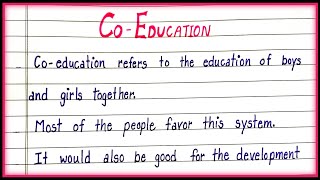 CO-EDUCATION
Co-education refers to the education of boys
and girls together.
Most of the people favor this system.
It would also be good for the development